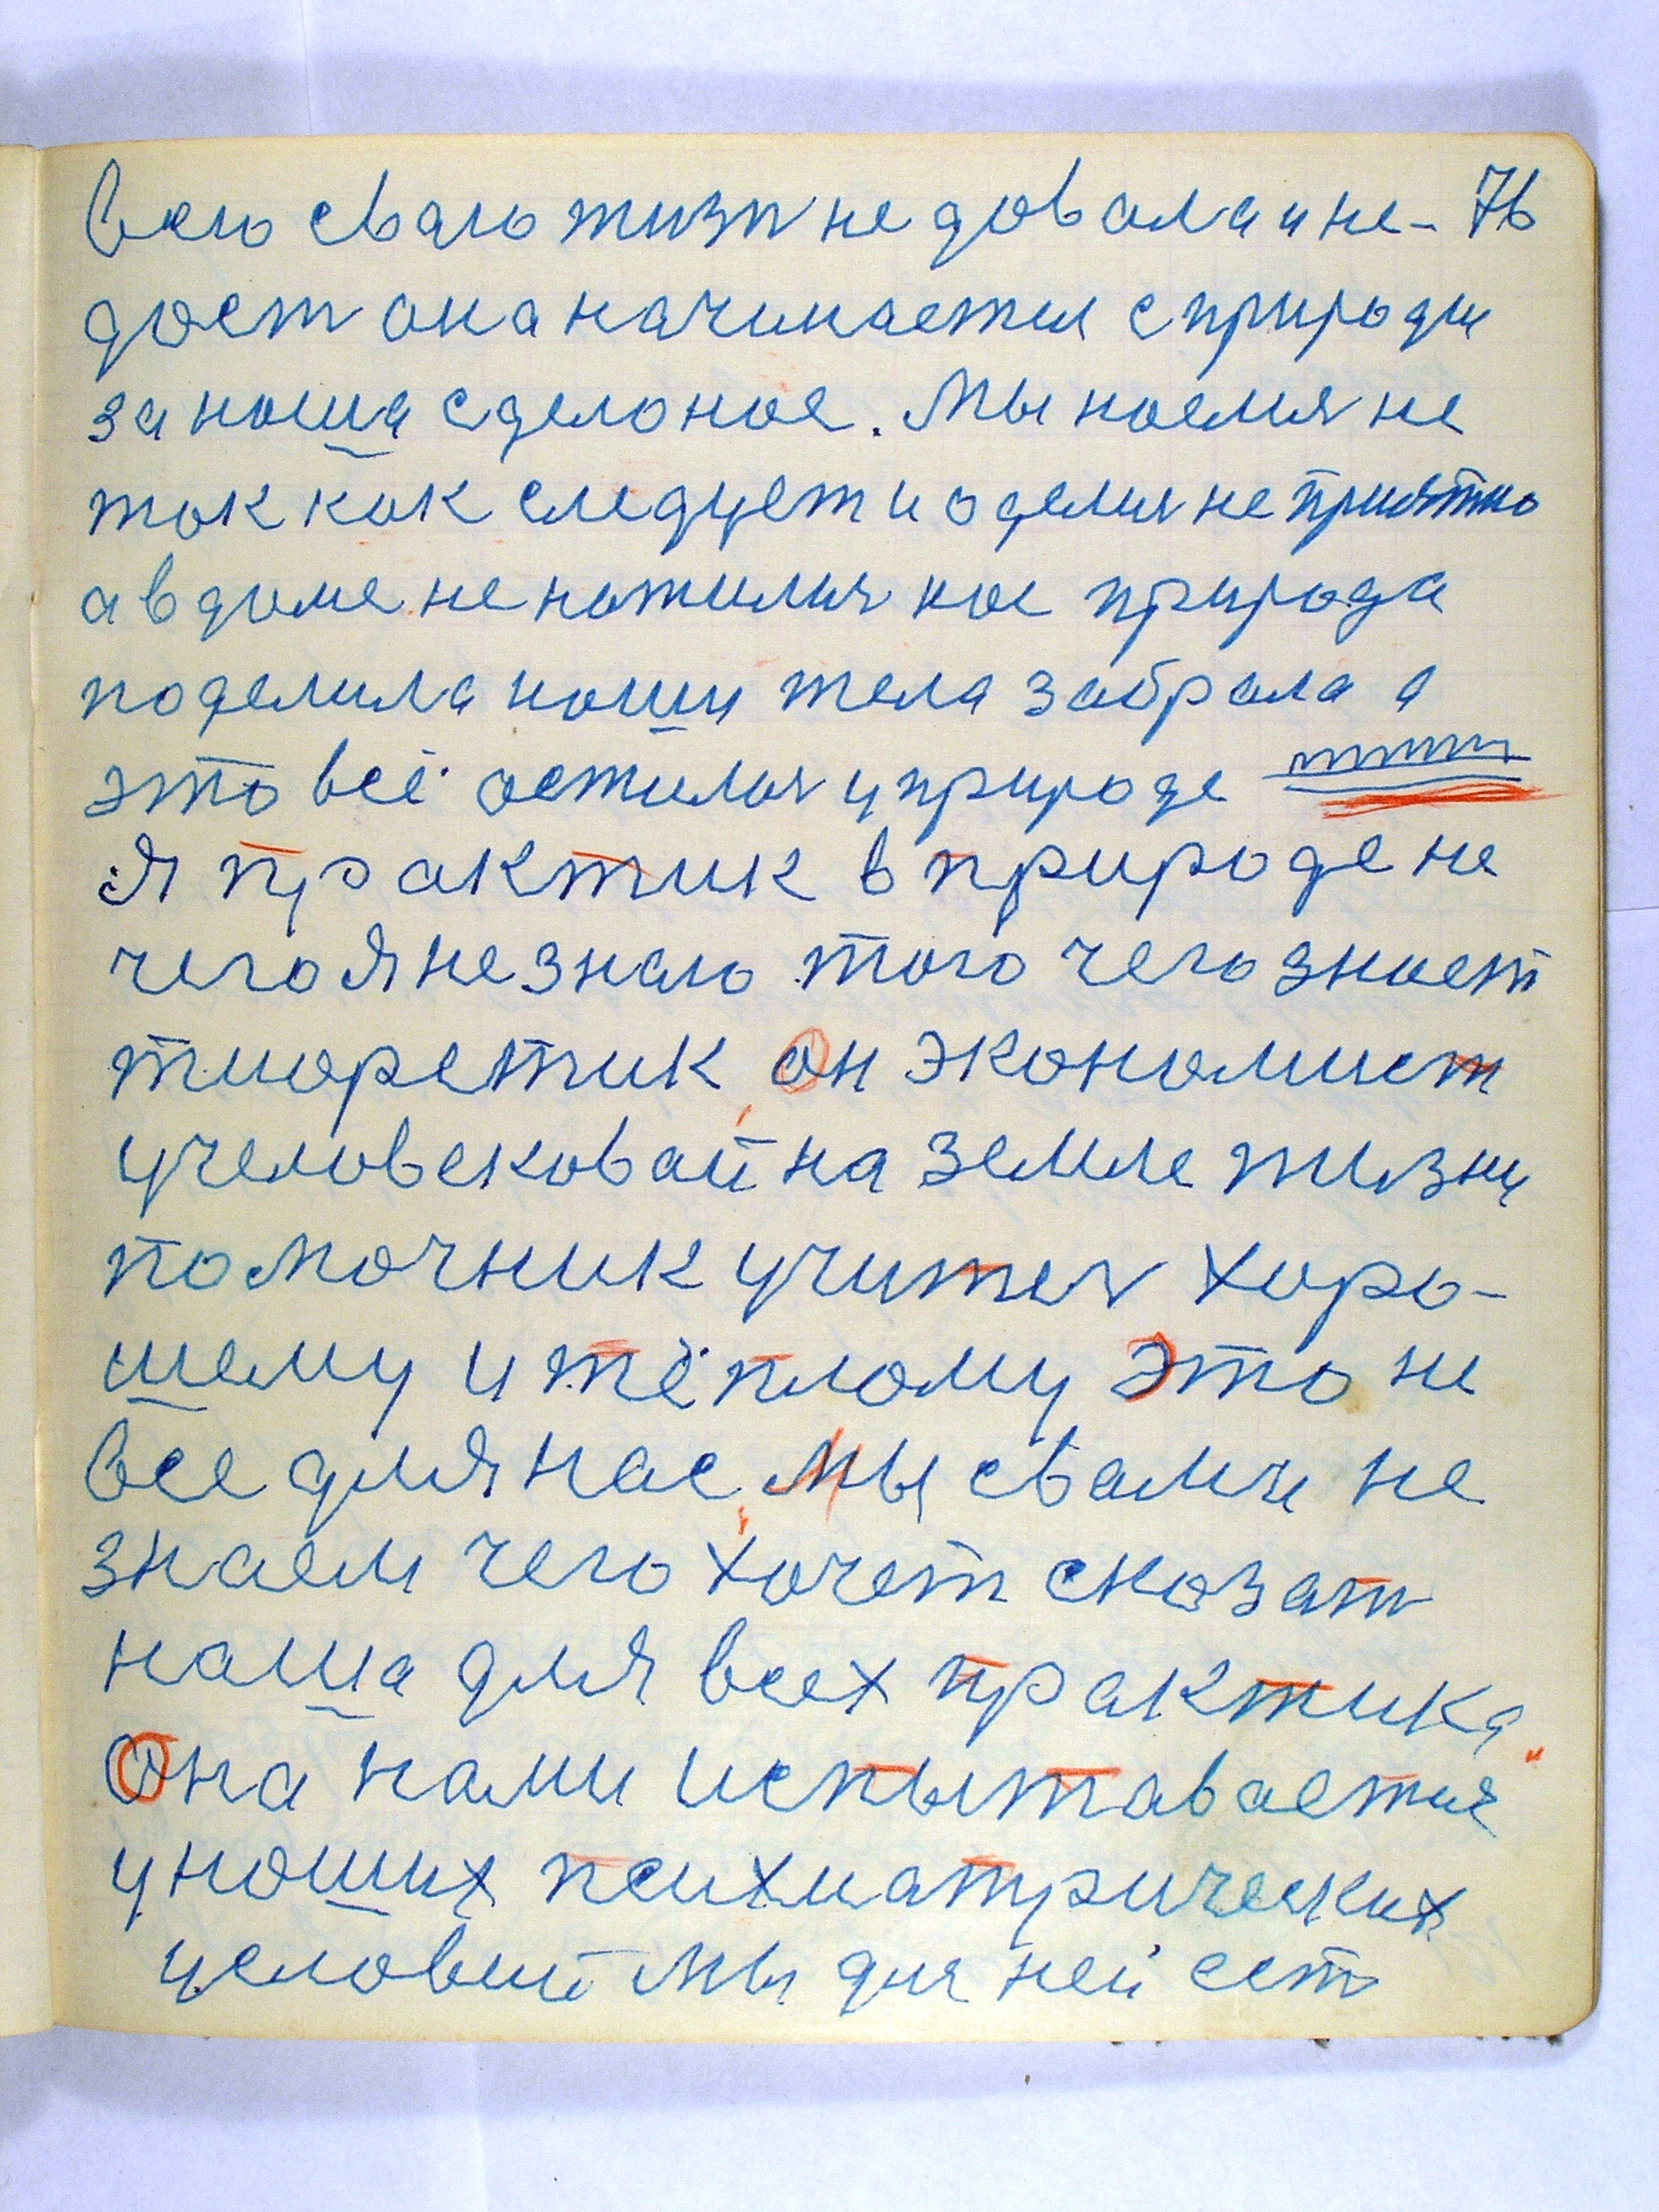 всю сваю жизн не довала и не- 76
дост она начинается с природы
за наша сделоное. Мы наемся не
ток как следует и оделися не приятно
а в доме не нажилися нас природа
поделила наши тела забрала а
это всё осталося у природе
Я практик в природе не
чего я не знаю того чего знает
тиоретик он экономист
у человековай на земле жизни
помочник учится хоро-
шему и тёплому это не
все для нас, Мы свами не
знаем чего хочет сказат
наша для всех практика
Она нами испытавается
у наших психиатрических
условий мы для ней ест